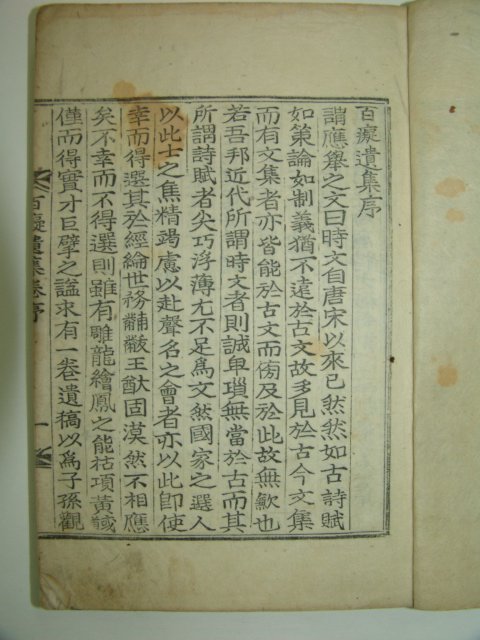 百癡遺集序
謂應擧之文曰時文自唐宋以來已然然如古詩賦
如策論如制義猶不遠於古文故多見於古今文集
而有文集者亦皆能於古文而傍及於此故無歉也
若吾邦近代所謂時文者則誠卑瑣無當於古而其
所謂詩賦者尖巧浮薄尤不足爲文然國家之選人
以此士之焦精竭慮以赴聲名之會者亦以此卽使
幸而得選其於經綸世務黼黻王猷固漠然不相應
矣不幸而不得選則雖有雕龍繪鳳之能枯項黃馘
僅而得實才巨擘之謚求有一卷遺稿以爲子孫觀
百癡遺集卷序
一